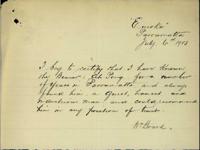 "Eureka"
Parramatta
July 6th 1908
I beg to certify that I have known
the Bearer for a number
of years in Parramatta and always
found him a Quiet, honest and
industrious man and could recommend
him in any position of trust.